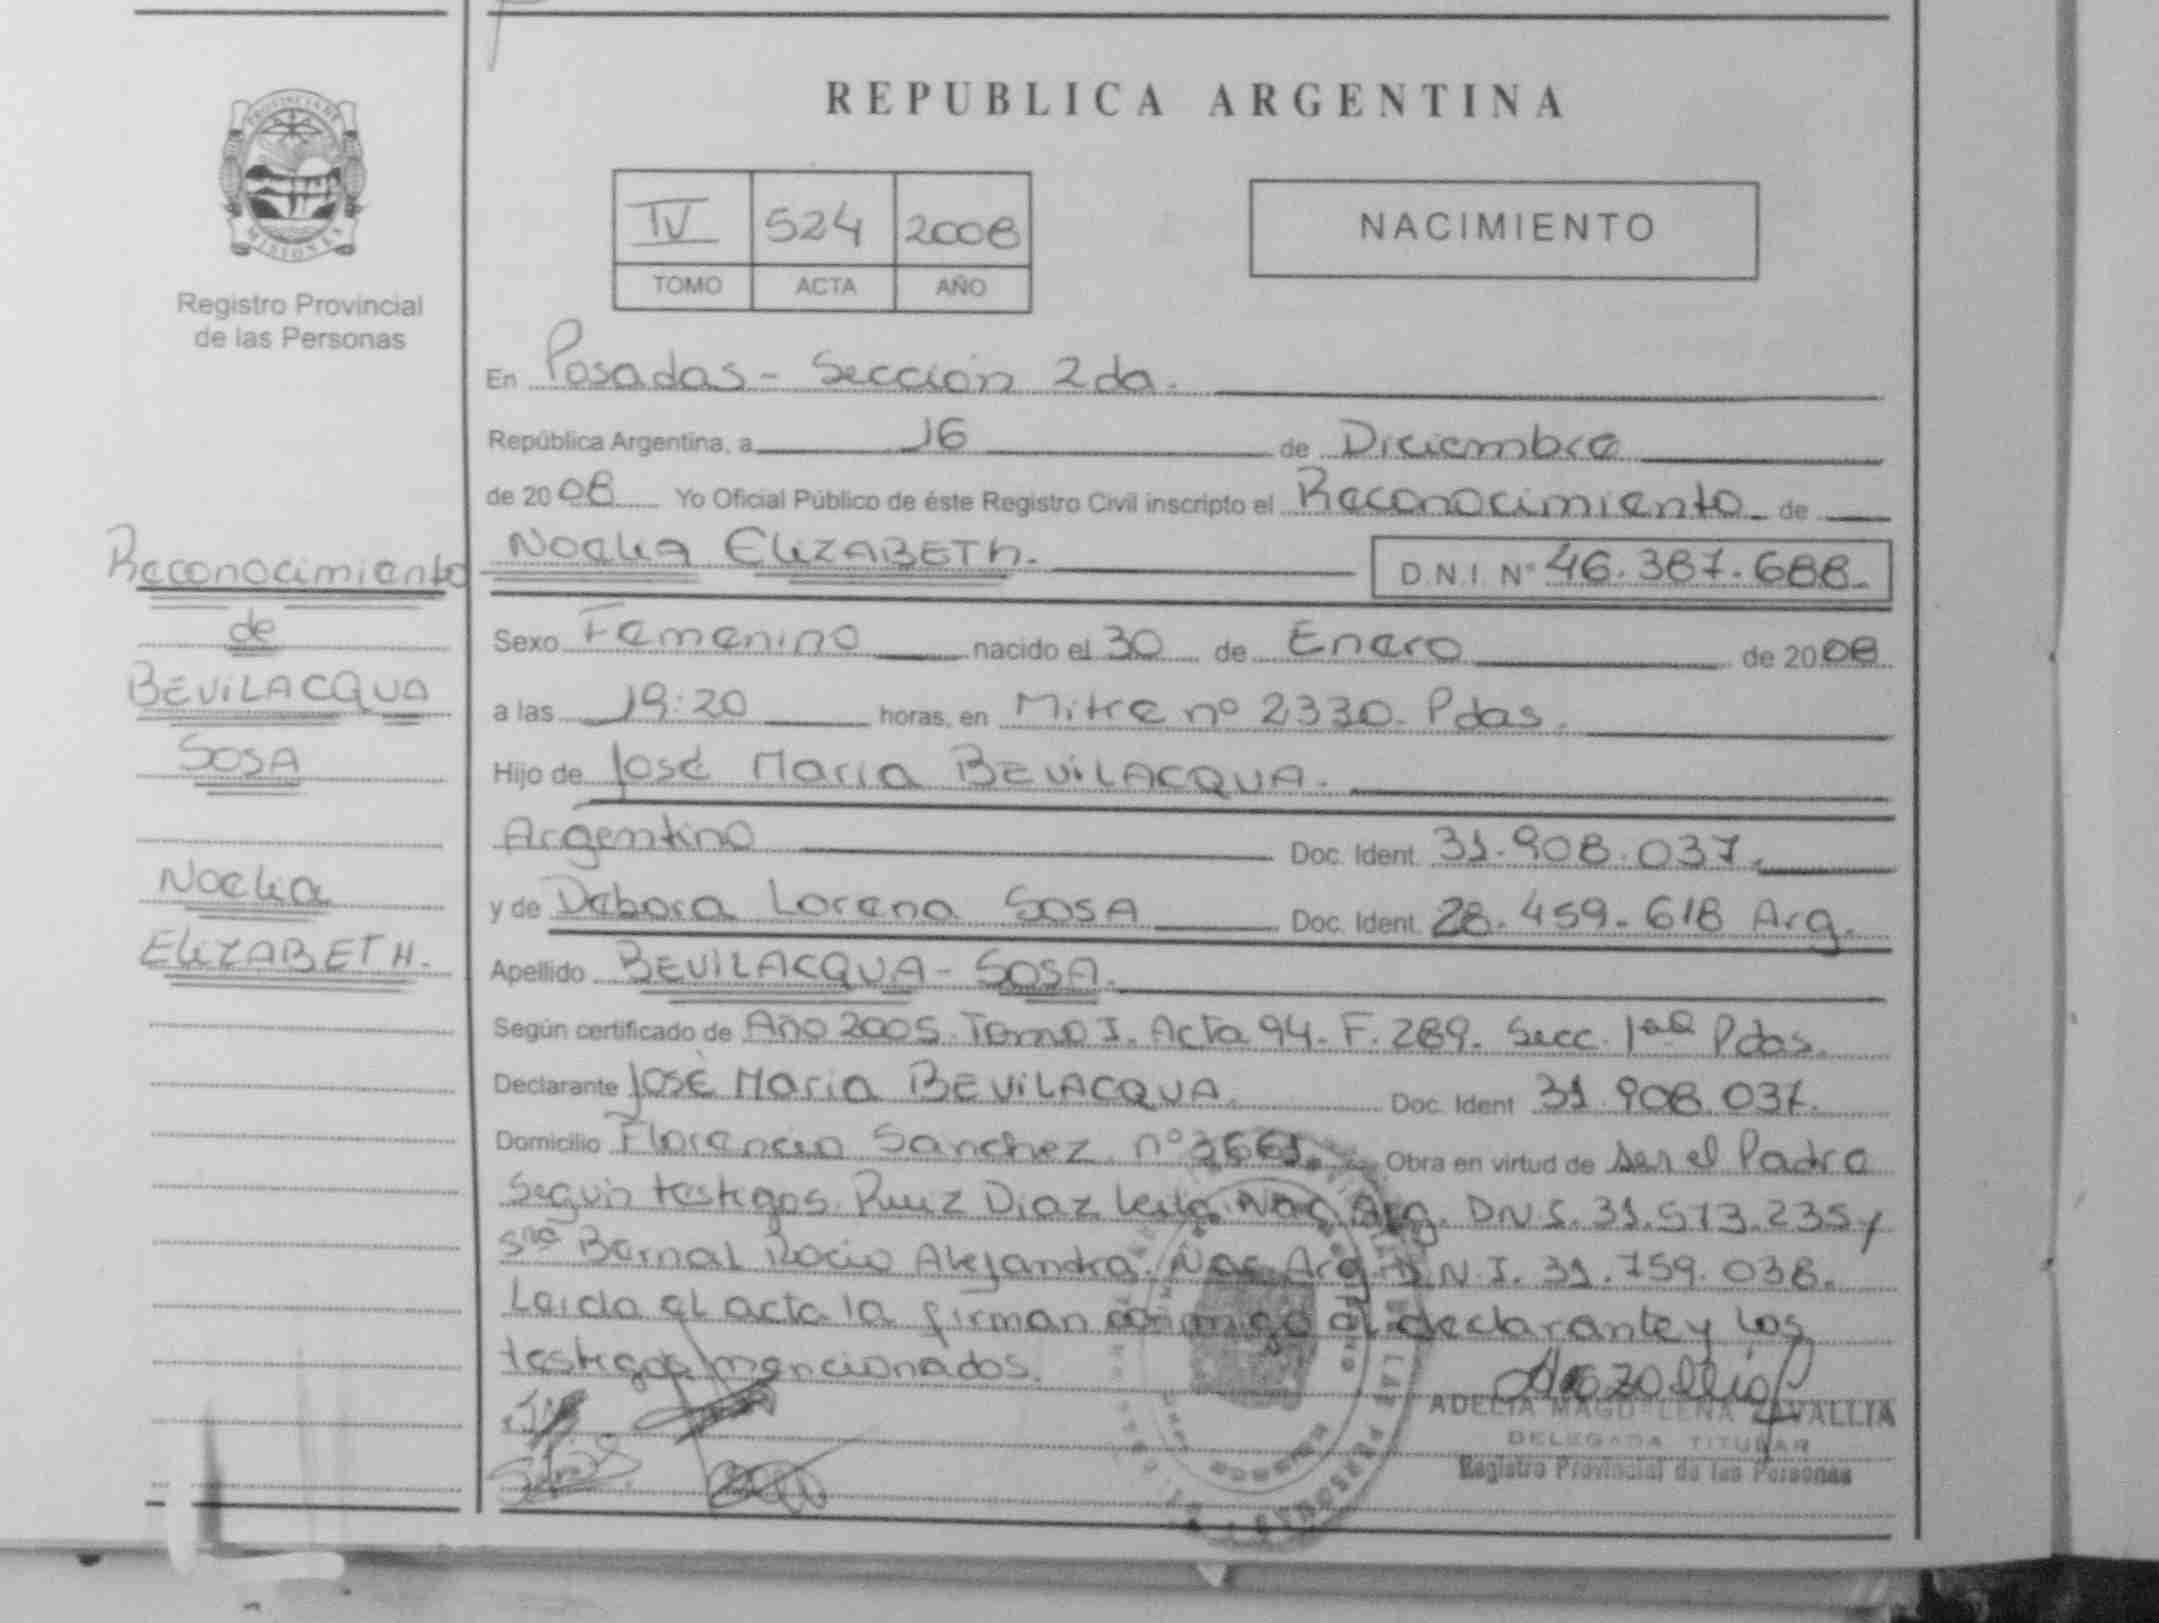 REPUBLICA ARGENTINA
PROVINCIA DE
MISIONES
Registro Provincial
de las Personas
IV 524 2008
TOMO ACTA AÑO
NACIMIENTO
En Posadas - Sección 2da.
República Argentina, a 16 de Diciembre
de 2008 Yo Oficial Público de éste Registro Civil inscripto el Reconocimiento de
Noelia ELIZABETH. D.N.I. Nº 46.387.688.
Sexo Femenino nacido el 30 de Enero de 2008
a las 19:20 horas, en Mitre nº 2330. Pdas.
Hijo de José Maria BEVILACQUA.
Argentino Doc. Ident. 31.908.037.
y de Debora Lorena SOSA Doc. Ident. 28.459.618 Arg.
Apellido BEVILACQUA - SOSA.
Según certificado de Año 2005. Tomo I. Acta 94. F. 289. Secc. 1ª Pdas.
Declarante José Maria BEVILACQUA. Doc. Ident 31.908.037.
Domicilio Florencio Sanchez nº Obra en virtud de ser el Padre
Según testigos Ruiz Diaz Nac Arg. DNI. 31.573.235 y
Sra Bernal Rocio Alejandra. Nac Arg. D.N.I. 31.759.038.
Leida el acta la firman conmigo el declarante y los
testigos mencionados.
ADELIA MAGDALENA ZAVALLIA
DELEGADA TITULAR
Registro Provincial de las Personas
Reconocimiento
de
BEVILACQUA
SOSA
Noelia
ELIZABETH.